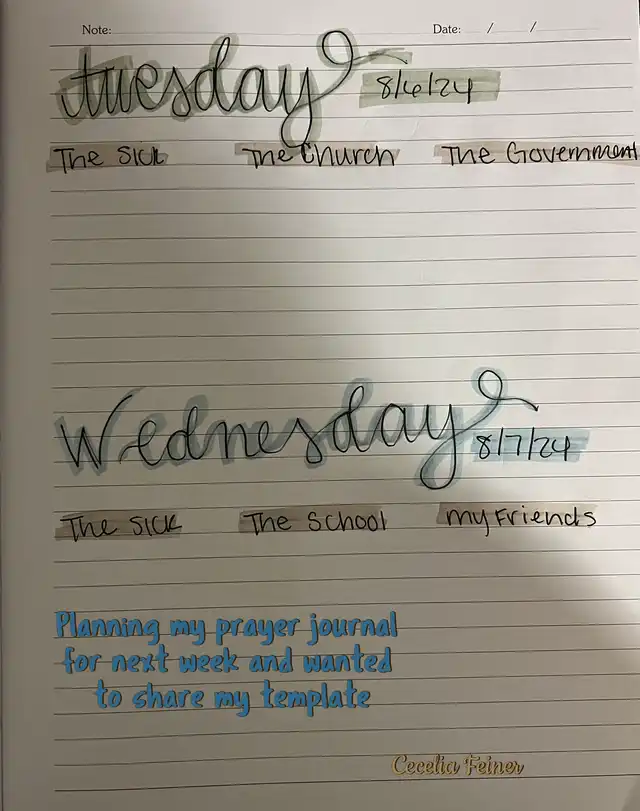 Note: Date: / /
Tuesday 8/6/24
The Sick The Church The Government
Wednesday 8/7/24
The Sick The School My Friends
Planning my prayer journal
for next week and wanted
to share my template
Cecelia Feiner